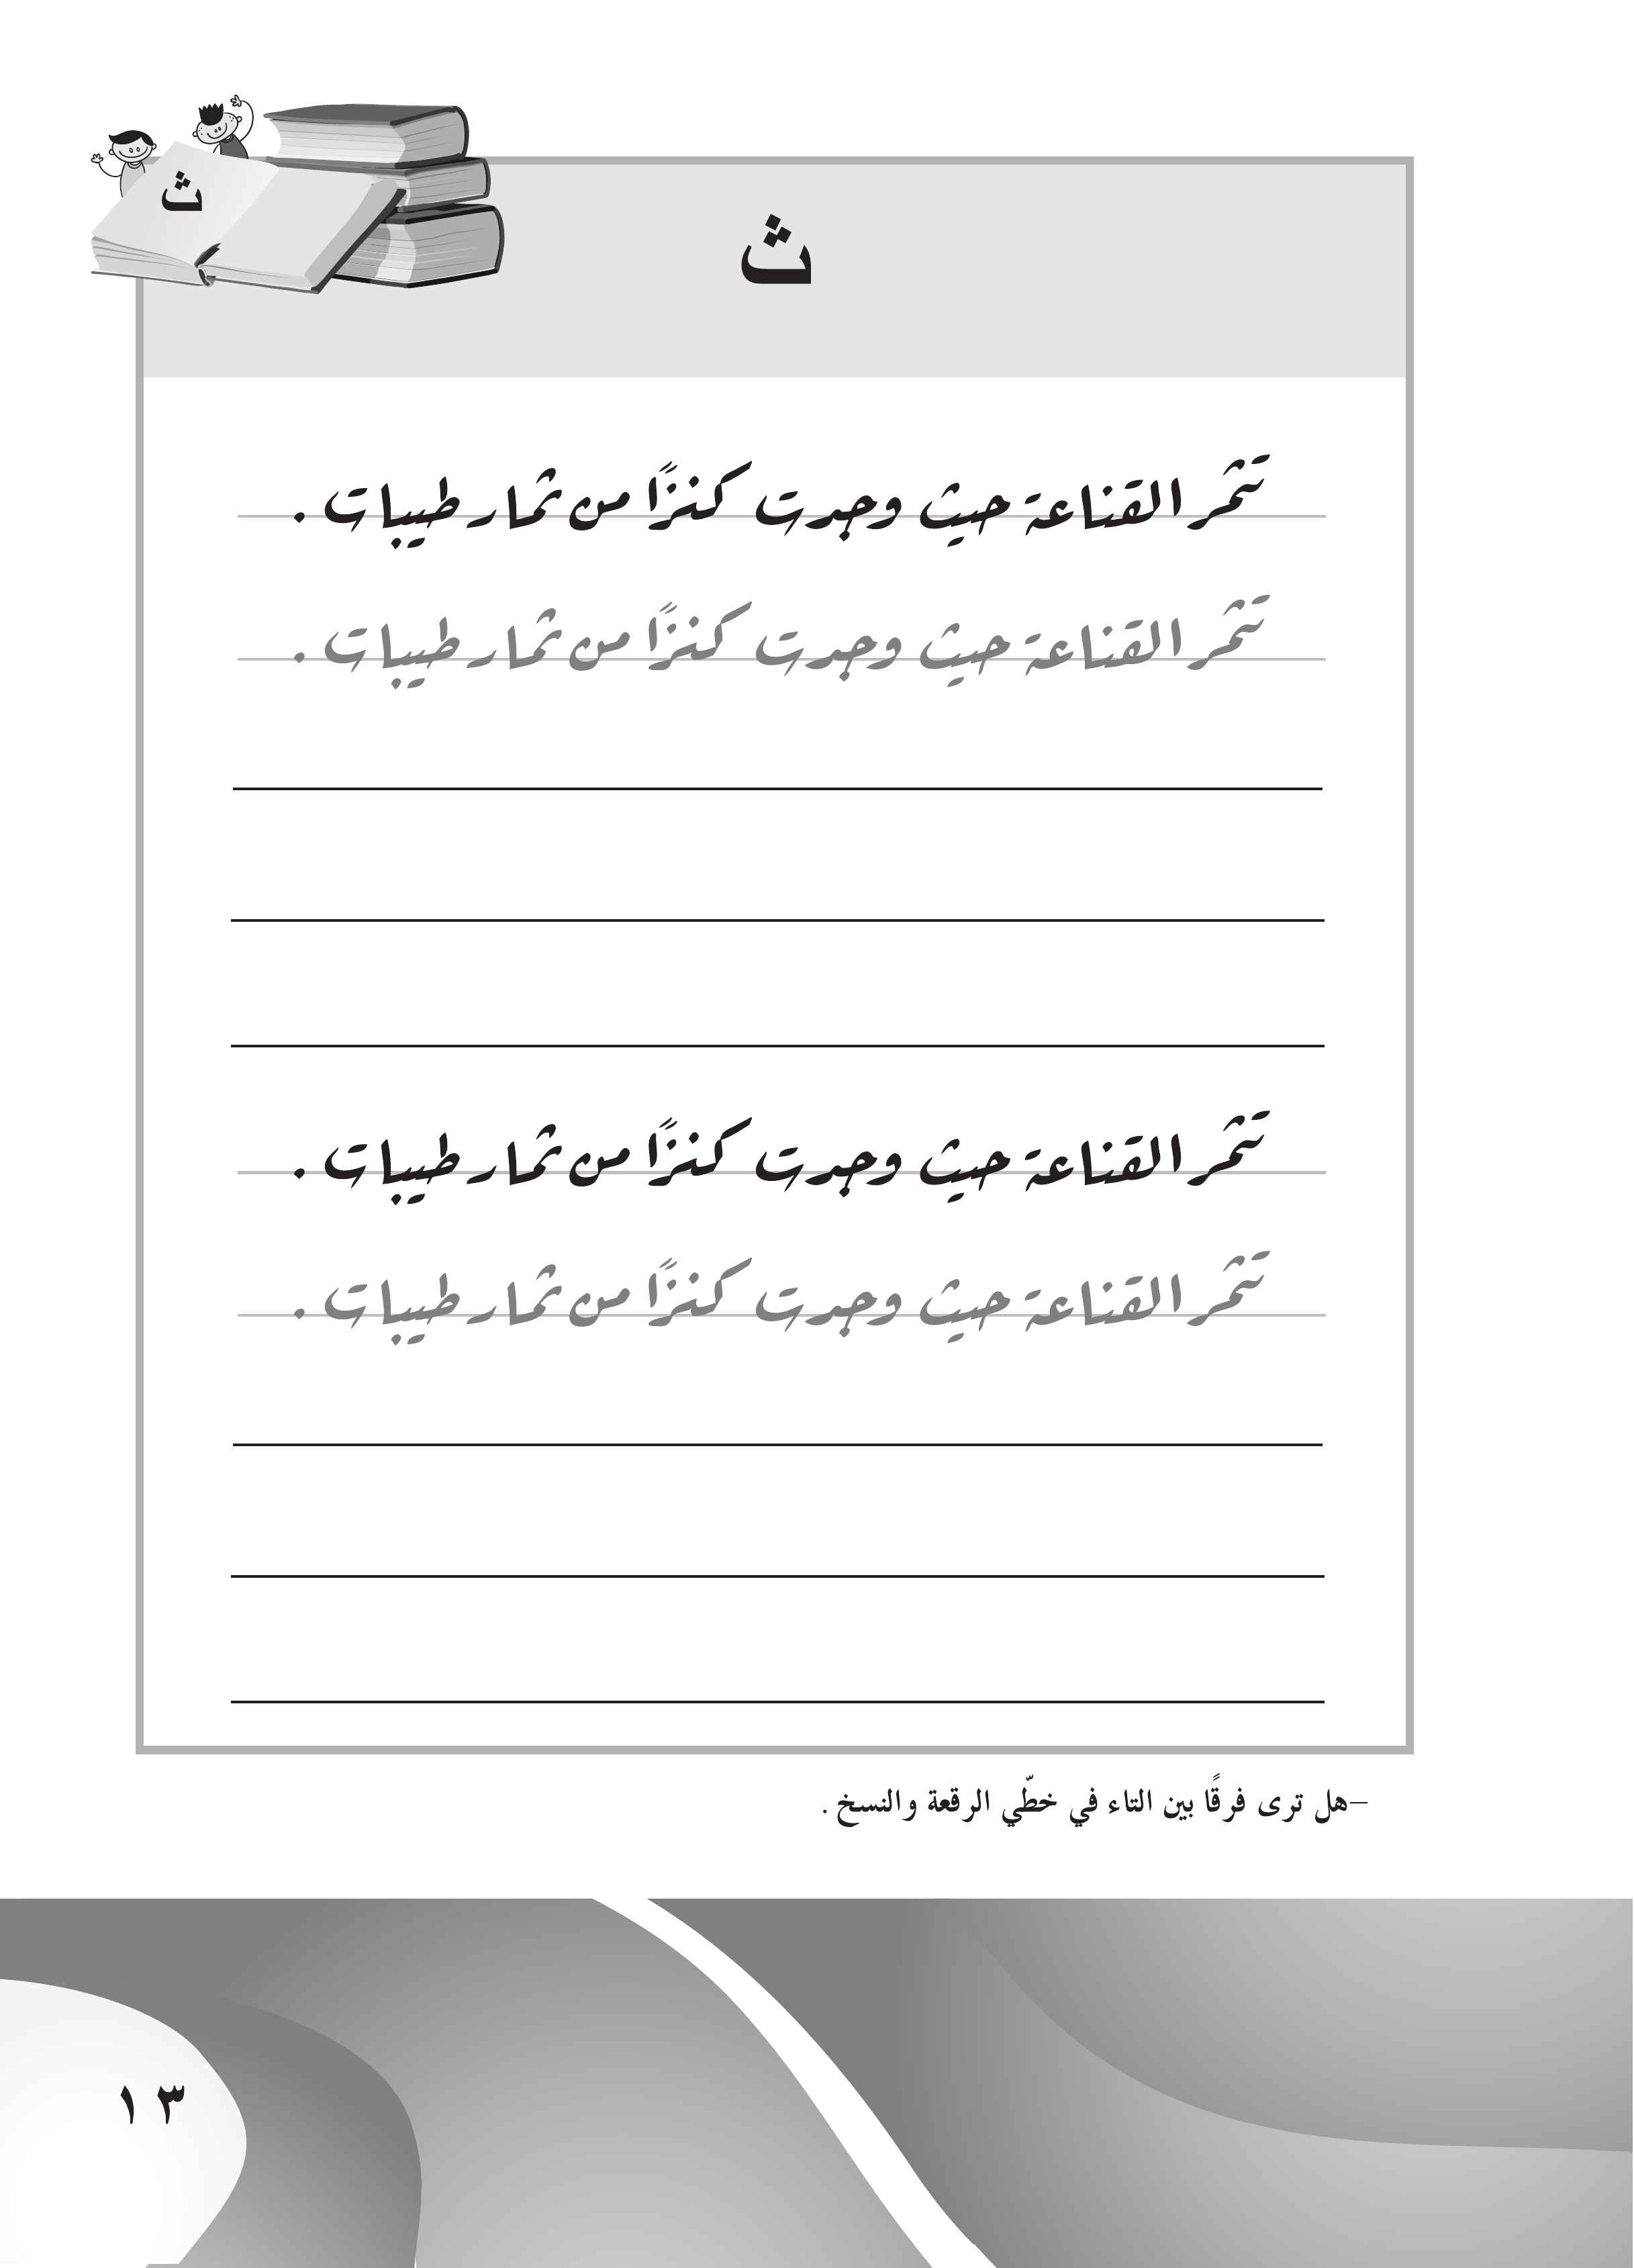 ث
ث
تثمر القناعة حيث وجدت كنزًا من ثمار طيبات .
تثمر القناعة حيث وجدت كنزًا من ثمار طيبات .
تثمر القناعة حيث وجدت كنزًا من ثمار طيبات .
تثمر القناعة حيث وجدت كنزًا من ثمار طيبات .
–هل ترى فرقًا بين التاء في خطّي الرقعة والنسخ .
١٣